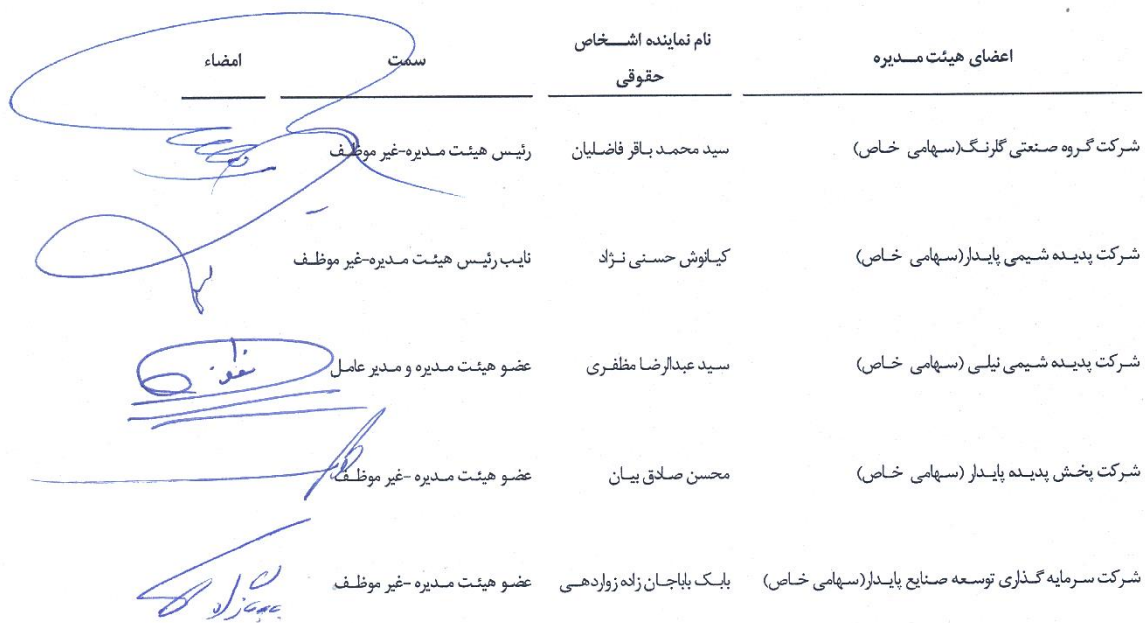 اعضای هیئت مدیره نام نماینده اشخاص حقوقی سمت امضاء
شرکت گروه صنعتی گلرنگ(سهامی خاص) سید محمد باقر فاضلیان رئیس هیئت مدیره-غیر موظف
شرکت پدیده شیمی پایدار(سهامی خاص) کیانوش حسنی نژاد نایب رئیس هیئت مدیره-غیر موظف
شرکت پدیده شیمی نیلی (سهامی خاص) سید عبدالرضا مظفری عضو هیئت مدیره و مدیر عامل
شرکت پخش پدیده پایدار (سهامی خاص) محسن صادق بیان عضو هیئت مدیره -غیر موظف
شرکت سرمایه گذاری توسعه صنایع پایدار(سهامی خاص) بابک باباجان زاده زواردهی عضو هیئت مدیره -غیر موظف